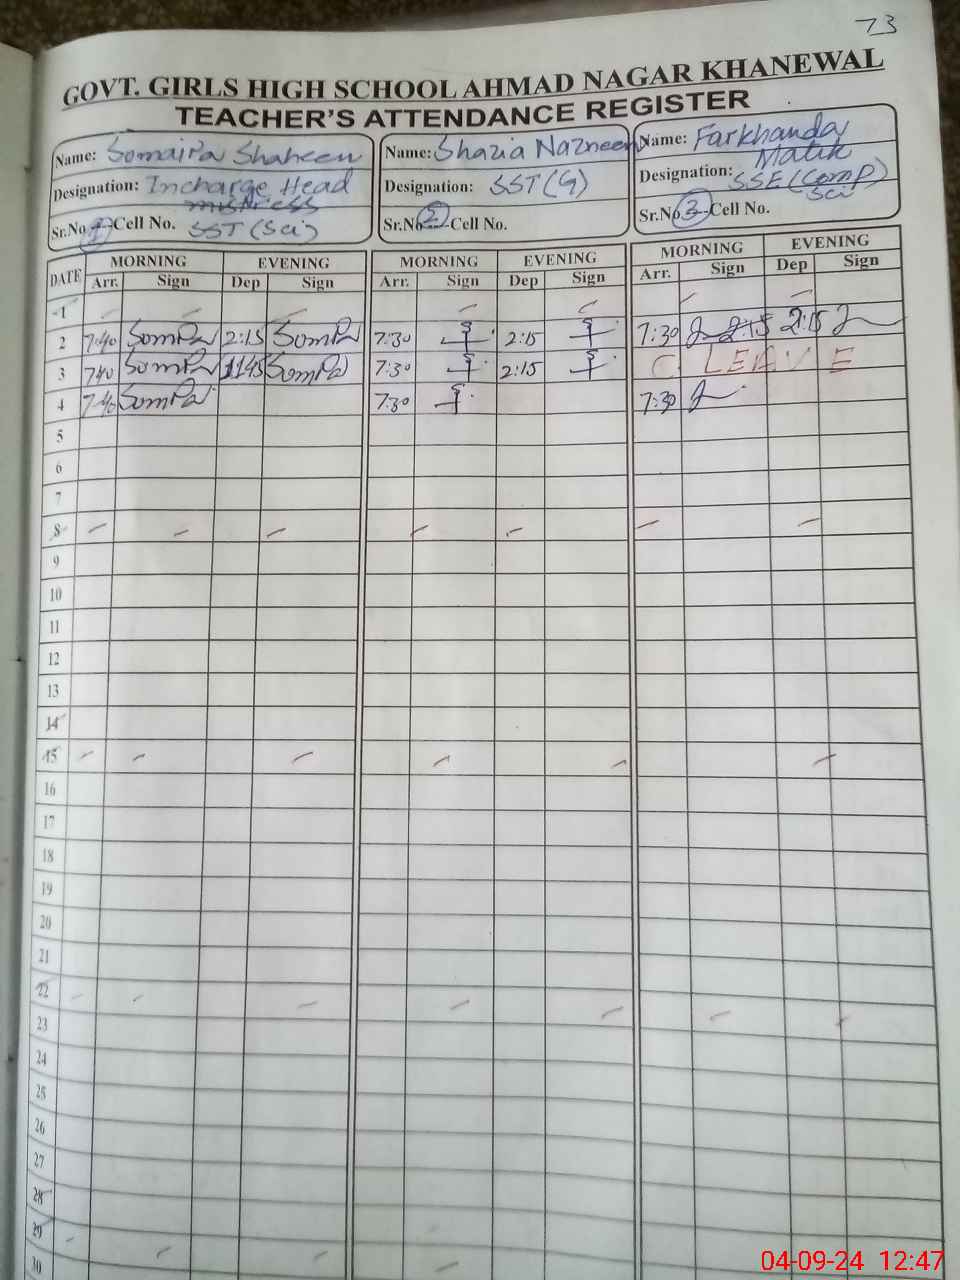 73
GOVT. GIRLS HIGH SCHOOL AHMAD NAGAR KHANEWAL
TEACHER'S ATTENDANCE REGISTER
Name: Somaira Shaheen Name: Shazia Nazneen Name: Farkhanda Malik
Designation: Incharge Head mistress Designation: SST(G) Designation: SSE (Comp) Sci
Sr.No 1 Cell No. SST (Sci) Sr.No 2 Cell No. Sr.No 3 Cell No.
DATE MORNING EVENING MORNING EVENING MORNING EVENING
Arr. Sign Dep Sign Arr. Sign Dep Sign Arr. Sign Dep Sign
1
2 7:40 Somra 2:15 Somra 7:30 2:15 7:30 2:15 2:15
3 7:40 Somra 1145 Somra 7:30 2:15 C LEAVE
4 7:40 Somra 7:30 7:30
5
6
7
8
9
10
11
12
13
14
15
16
17
18
19
20
21
22
23
24
25
26
27
28
29
30
04-09-24 12:47